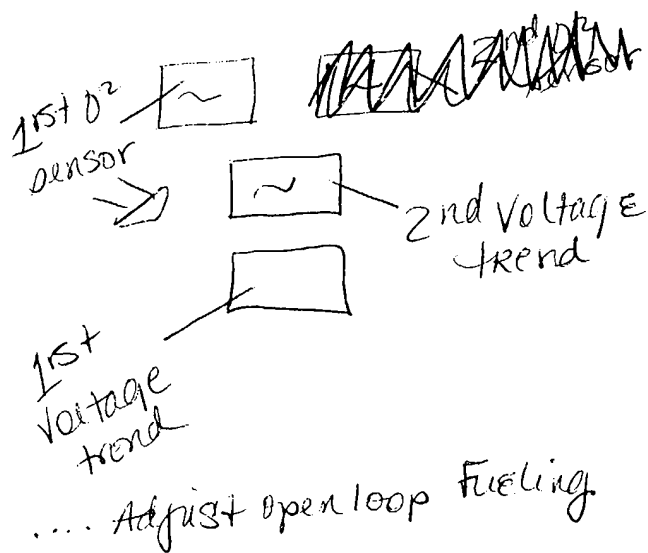 1rst O²
sensor
2nd O²
sensor
2nd voltage
trend
1rst
voltage
trend
.... Adjust open loop Fueling